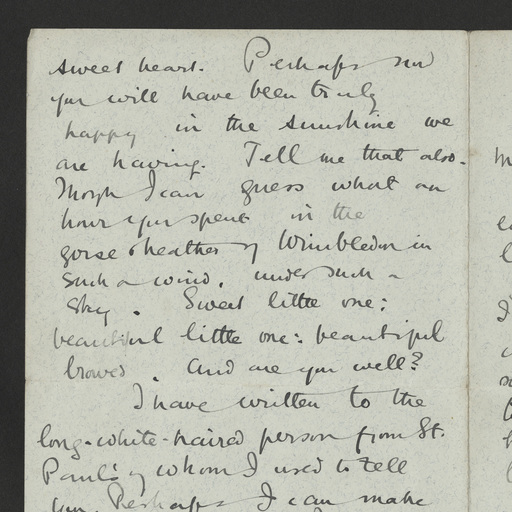 sweet heart. Perhaps now
you will have been truly
happy in the sunshine we
are having. Tell me that also.
Though I can guess what an
hour you spent in the
gorse & heather of Wimbledon in
such a wind, under such a
sky. Sweet little one:
beautiful little one: beautiful
browed. And are you well?
I have written to the
long-white-haired person from St.
Paul's of whom I used to tell
you. Perhaps I can make